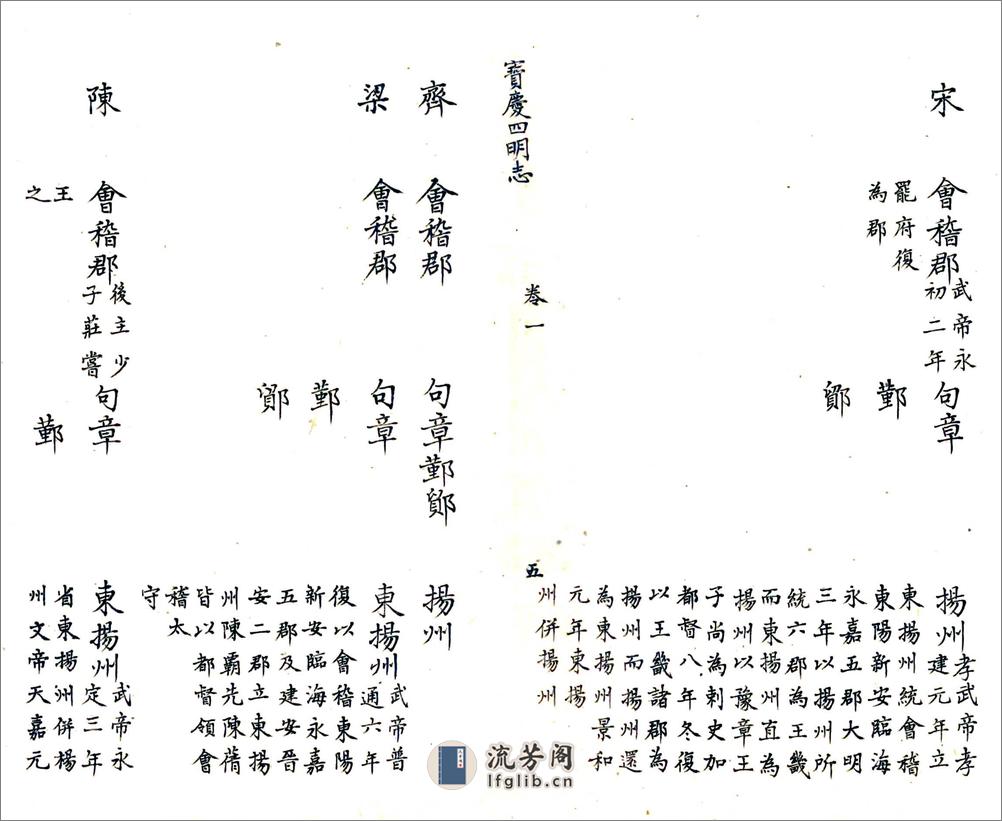 宋
會稽郡
武帝永
初二年
罷府復
為郡
句章
鄞
鄮
揚州
孝武帝孝
建元年立
東揚州統會稽
東陽新安臨海
永嘉五郡大明
三年以揚州所
統六郡為王畿
而東揚州直為
揚州以豫章王
子尚為刺史加
都督八年冬復
以王畿諸郡為
揚州而揚州還
為東揚州景和
元年東揚
州併揚州
寶慶四明志
卷一
五
齊
會稽郡
句章鄞鄮
揚州
梁
會稽郡
句章
鄞
鄮
東揚州
武帝普
通六年
復以會稽東陽
新安臨海永嘉
五郡及建安晉
安二郡立東揚
州陳霸先陳蒨
皆以都督領會
稽太
守
陳
會稽郡
後主少
子莊嘗
王
之
句章
鄞
東揚州
武帝永
定三年
省東揚洲併楊
州文帝天嘉元
流芳阁
lfglib.cn